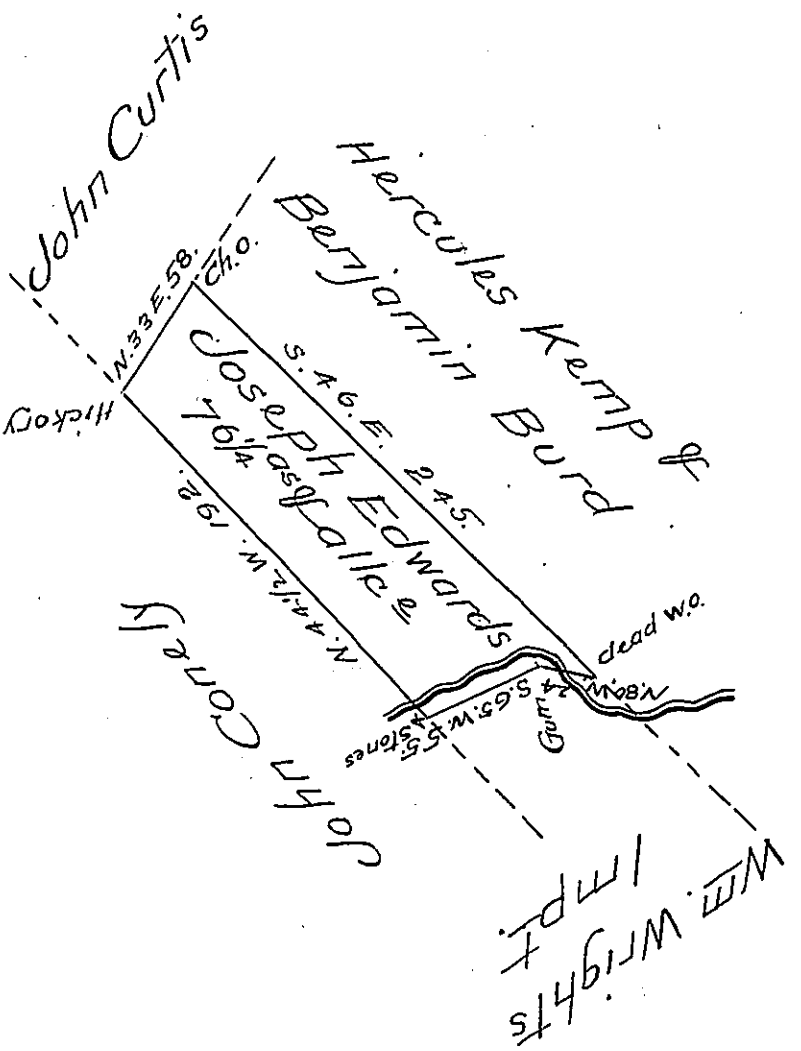 John Curtis
Hercules Kemp &
Benjamin Burd
N.33E.58.
Ch.O.
Hickory
S.46.E. 245.
Joseph Edwards
76¼ as & allce
N.44½W.192.
John Conely
dead W.O.
N.80W.
24
Gum
S.65.W.55.
4 Stones
Wm. Wrights
Impt.